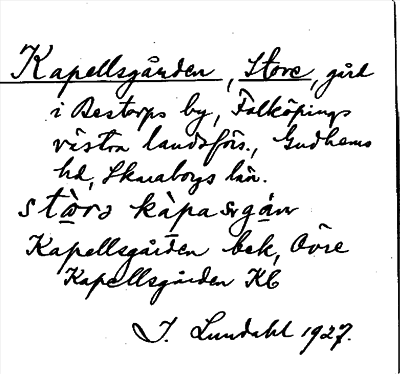 Kapellsgården, Store, gård
i Bestorps by, Falköpings
västra landsförs., Gudhems
hd, Skaraborgs län.
Kapellsgården bek, Övre
Kapellsgården KB
I. Lundahl 1927.